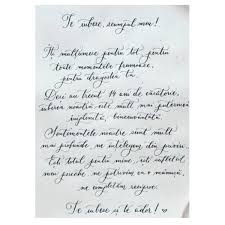 Te iubesc, scumpul meu!
Îți mulțumesc pentru tot, pentru
toate momentele frumoase,
pentru dragostea ta.
Deși au trecut 14 ani de căsătorie,
iubirea noastră este mult mai puternică
împlinită, binecuvântată.
Sentimentele noastre sunt mult
mai profunde, ne înțelegem din priviri.
Ești totul pentru mine, ești sufletul
meu pereche, ne potrivim ca o mănușă,
ne completăm reciproc.
Te iubesc și te ador!